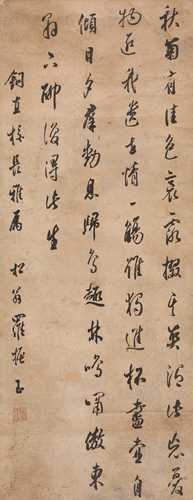 秋菊有佳色裛露掇其英汎此忘憂
物遠我遺世情一觴雖獨進杯盡壺自
傾日夕羣動息歸鳥趣林鳴嘯傲東
軒下聊復得此生
校長雅屬 松翁羅振玉